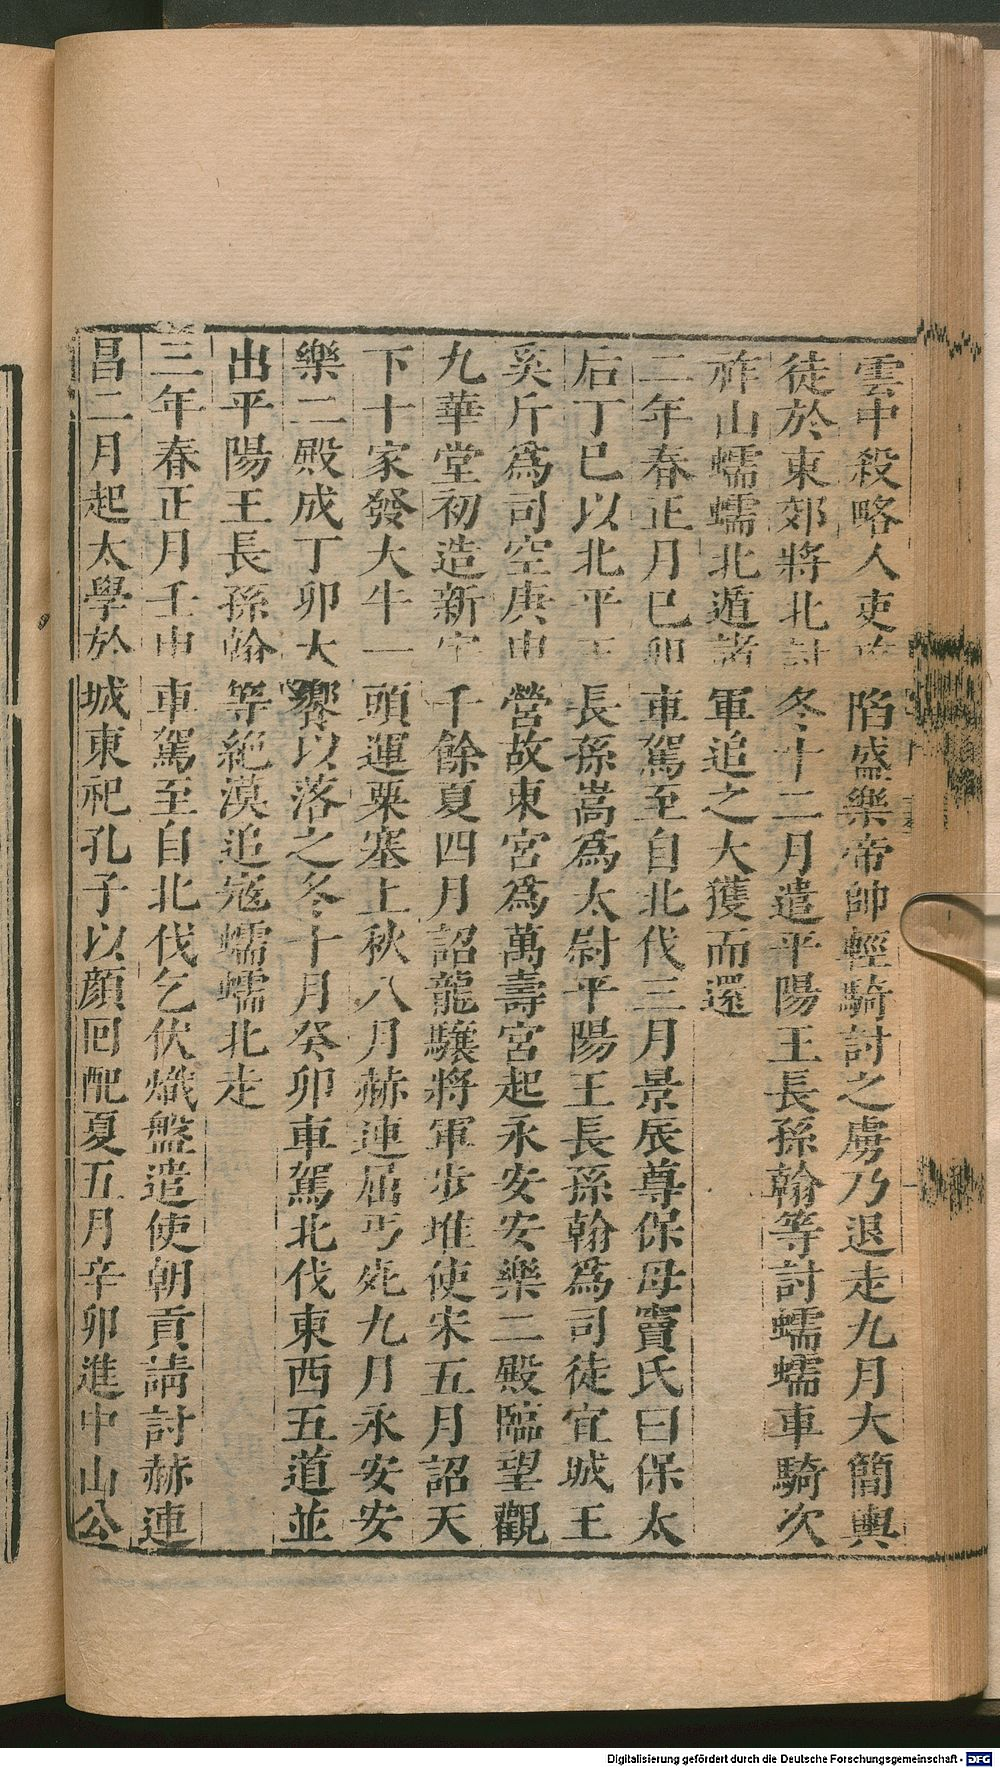 雲中殺略人吏攻陷盛樂帝帥輕騎討之虜乃退走九月大簡輿
徒於東郊將北討冬十二月遣平陽王長孫翰等討蠕蠕車騎次
祚山蠕蠕北遁諸軍追之大獲而還
二年春正月巳卯車駕至自北伐三月景辰尊保母竇氏曰保太
后丁巳以北平王長孫嵩爲太尉平陽王長孫翰爲司徒宜城王
奚斤爲司空庚申營故東宮爲萬壽宮起永安安樂二殿臨望觀
九華堂初造新字千餘夏四月詔龍驤將軍步堆使宋五月詔天
下十家發大牛一頭運粟塞上秋八月赫連屈丐死九月永安安
樂二殿成丁卯大饗以落之冬十月癸卯車駕北伐東西五道並
出平陽王長孫翰等絶漠追寇蠕蠕北走
三年春正月壬申車駕至自北伐乞伏熾盤遣使朝貢請討赫連
昌二月起太學於城東祀孔子以顔回配夏五月辛卯進中山公
Digitalisierung gefördert durch die Deutsche Forschungsgemeinschaft - DFG